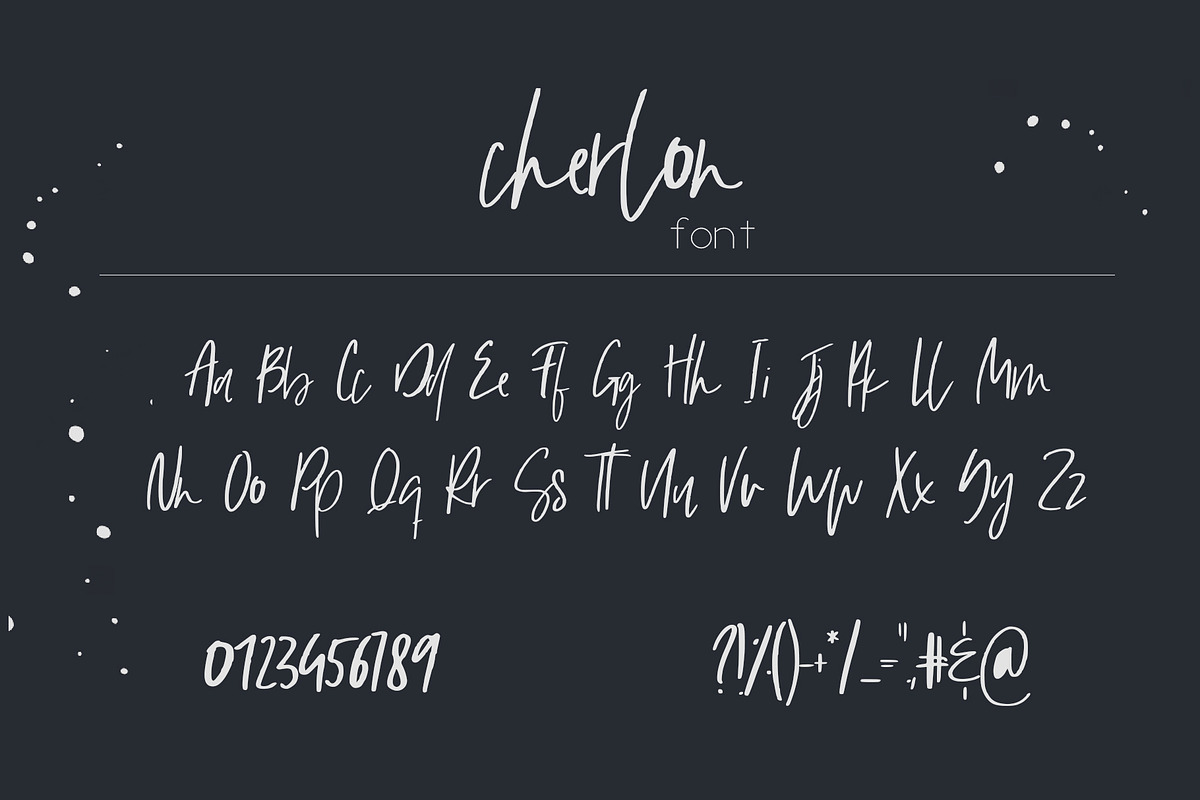 cherlon
font
Aa Bb Cc Dd Ee Ff Gg Hh Ii Jj Kk Ll Mm
Nn Oo Pp Qq Rr Ss Tt Uu Vv Ww Xx Yy Zz
0123456789
?!%()-+*/_=".,#&@